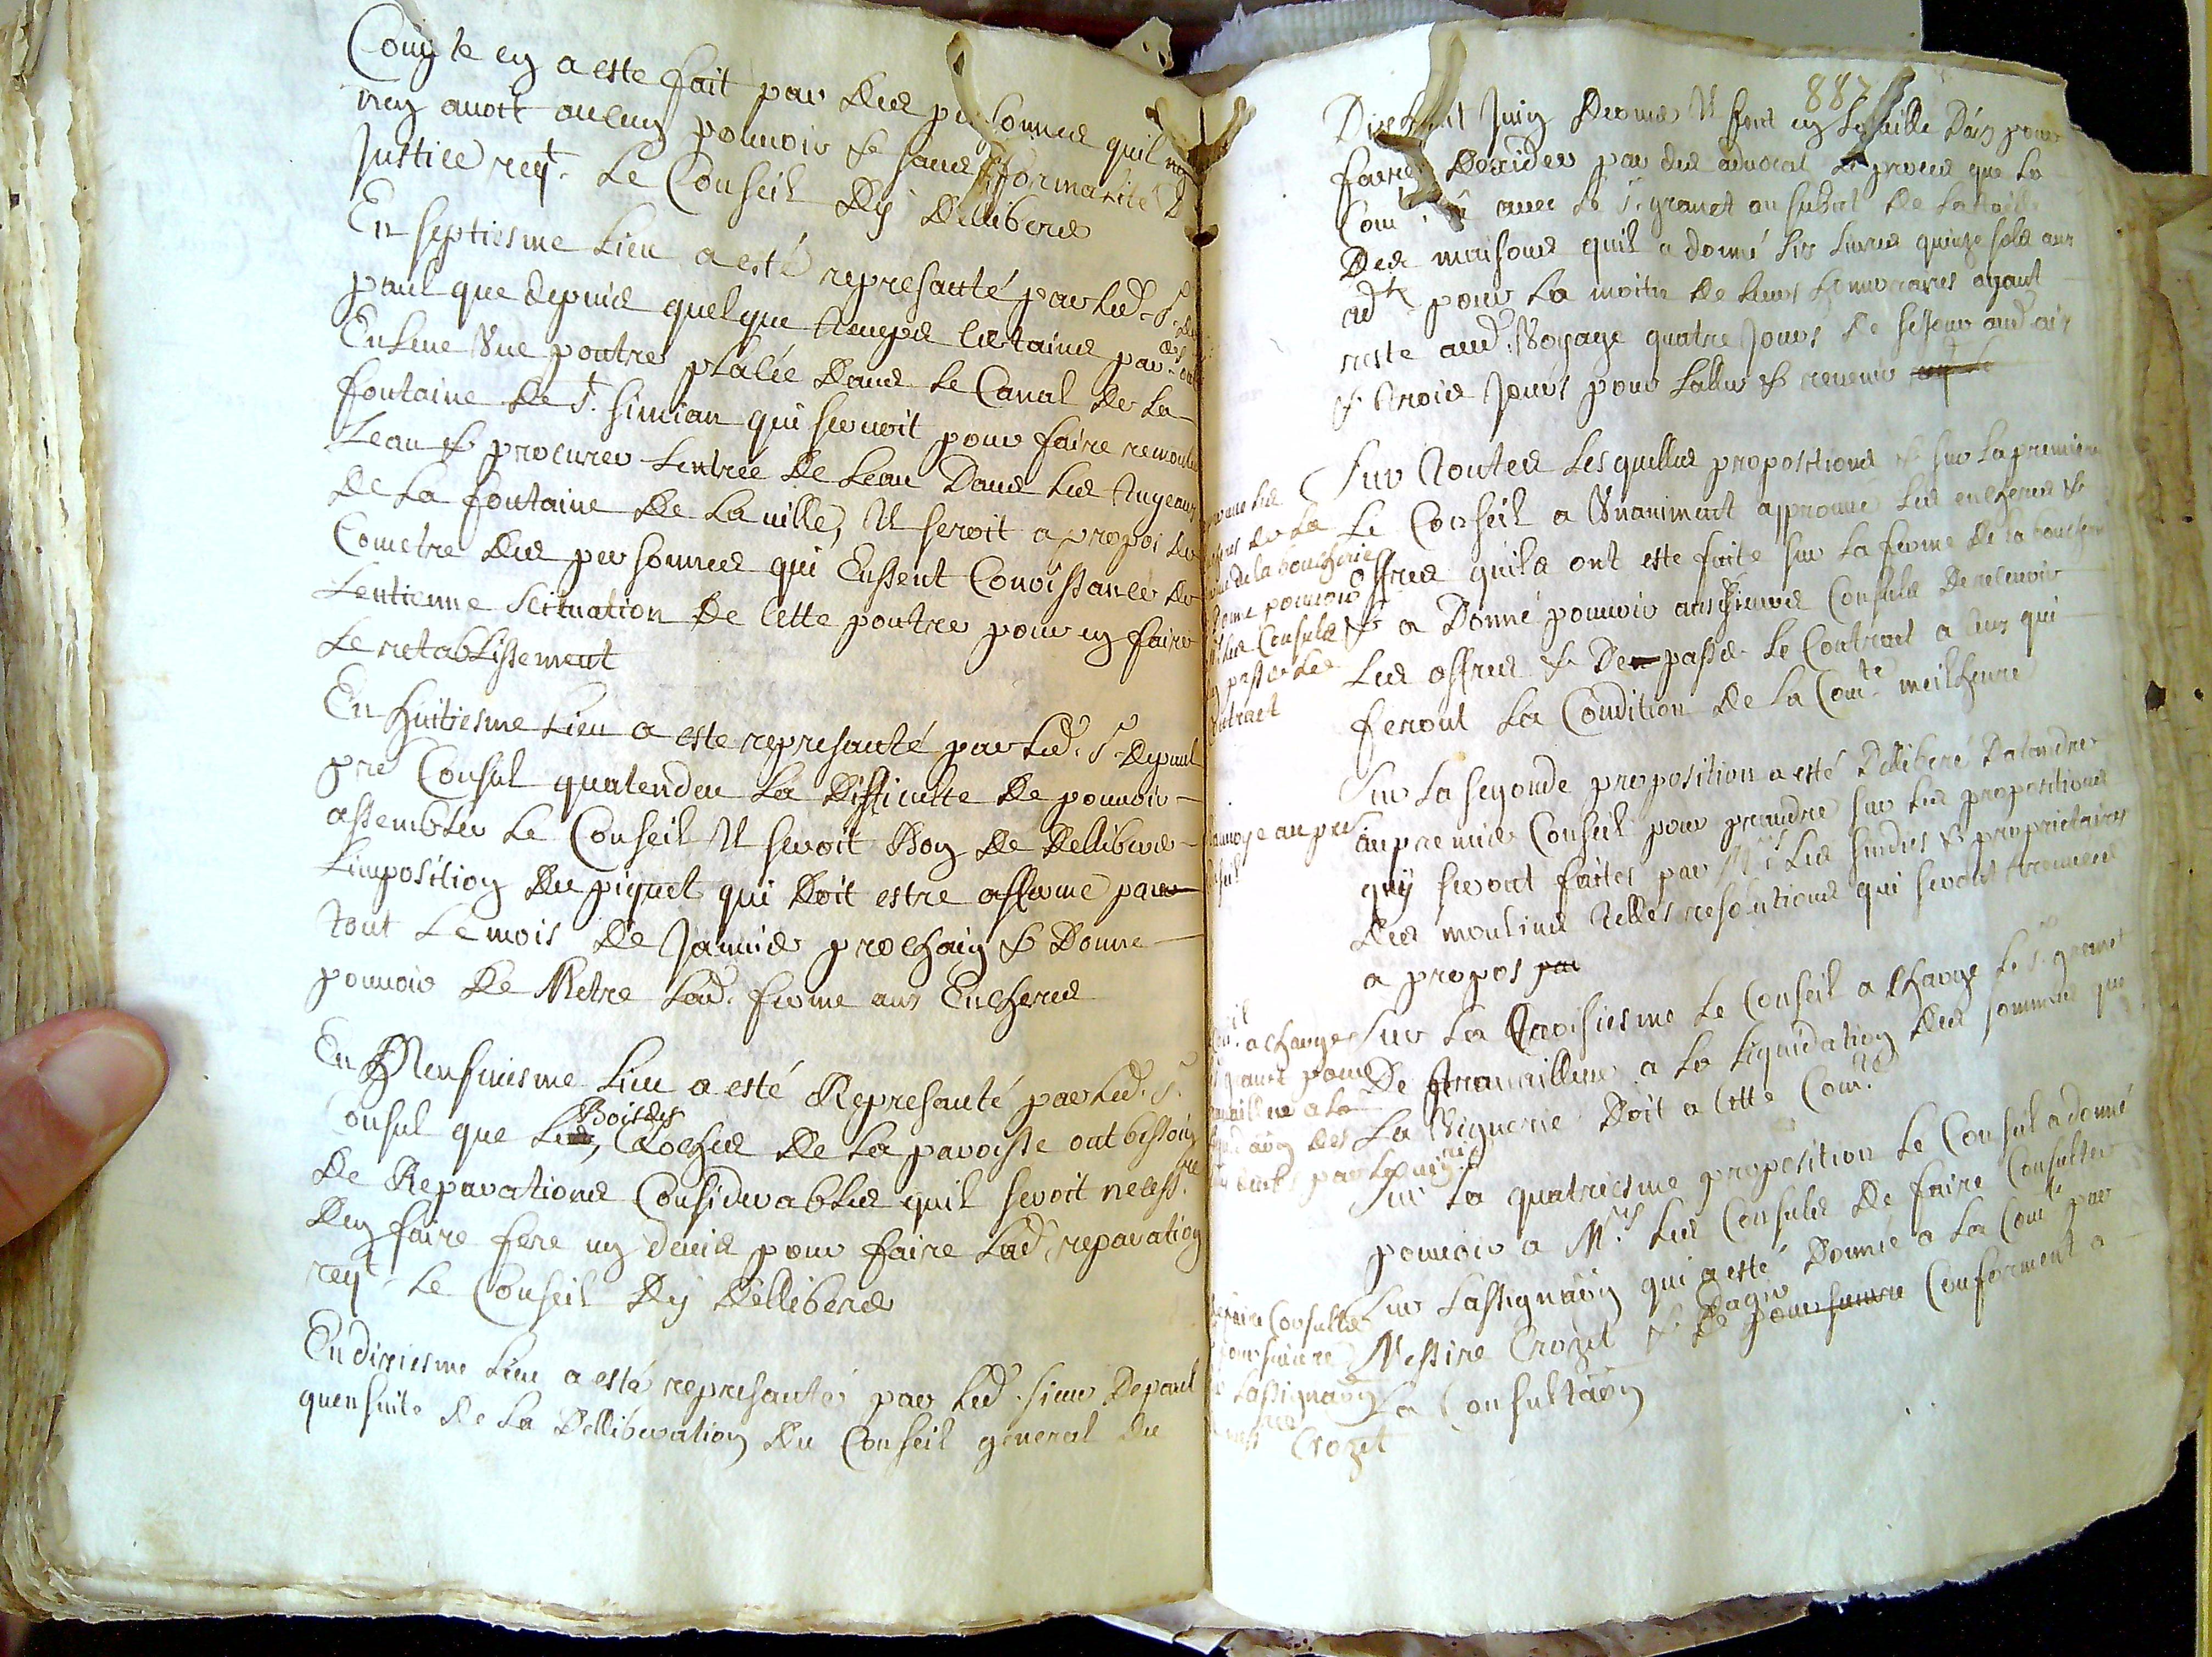 Compte en a este fait par des personnes quil
ney avoit aulcun pouvoir & sans formalité
Justice reqt. Le Conseil dy delliberer
En septiesme lieu a esté represanté par led. Sr de
paul que depuis quelque temps certains par
Enleve une poutre plasée dans le Canal de la
fontaine de St. simian qui servoit pour faire remonter
Leau & procurer Lentrée de Leau dans les tuyeaux
de la fontaine de la ville, Il seroit a propos de
Cometre des personnes qui Eussent Conoissance de
Lentienne scituation de cette poutre pour en faire
Le retablissement
En huitiesme lieu a este represanté par led. Sr Depaul
pre Consul quatendeu la difficulte de pouvoir
assembler le Conseil Il seroit bon de delliberer
Limposition du piquet qui doit estre afferme par
tout le mois de Janvier prochain & donner
pouvoir de Metre lad. ferme aux Encheres
En Neufviesme lieu a esté Represanté par led. Sr.
Consul que les, Cloches de la paroisse ont bessoin
Bois des
de Reparations Considerables quil seroit necessre
den faire fere un devis pour faire lad. reparation
reqt le Conseil dy delliberer
En dixiesme lieu a esté represanté par led. sieur Depaul
quensuite de la Delliberation du Conseil general du
887
Juin dernier Il feut en la ville daix pour
faire decider par des advocat le proces que la
Comté avec le Sr. granet au subiet de la taille
des maisons quil a donné six livres quinze sols aux
adts pour la moitie de leurs honnoraires ayant
reste aud. Voyage quatre Jours de sejour aud. aix
& trois Jours pour laller & revenir
Sur toutes lesquelles propositions & sur la premiere
Le Conseil a Unaniment approuvé les encheres &
offres quils ont este faite sur la ferme de la boucherie
& a donné pouvoir aux sieurs Consuls de recevoir
les offres & de passer le Contract a ceux qui
feront la Condition de la Comte meilheure
de la boucherie
donne pouvoir
les Consuls
passer le
Contract
Sur la segonde proposition a esté delliberé datandre
au premier Conseil pour prandre sur les propositions
quy seront faites par Mrs les sindics & proprietaires
des moulins telles resolutions qui seront trouvées
a propos
au pre
Sur la troisiesme le Conseil a charge le Sr. granet
De travailler a la liquidation des sommes que
La Viguerie doit a cette Comte
a charge
granet pour
travailler a la
Sur la quatriesme proposition le Conseil a donné
pouvoir a Mrs. les Consuls de faire Consulter
sur lassignaon qui a esté donnée a la Comte par
Messire Crozet & de poursuivre Conforment a
dagir
La Consultaon
faire Consulter
poursuivre
lassignaon
Crozet